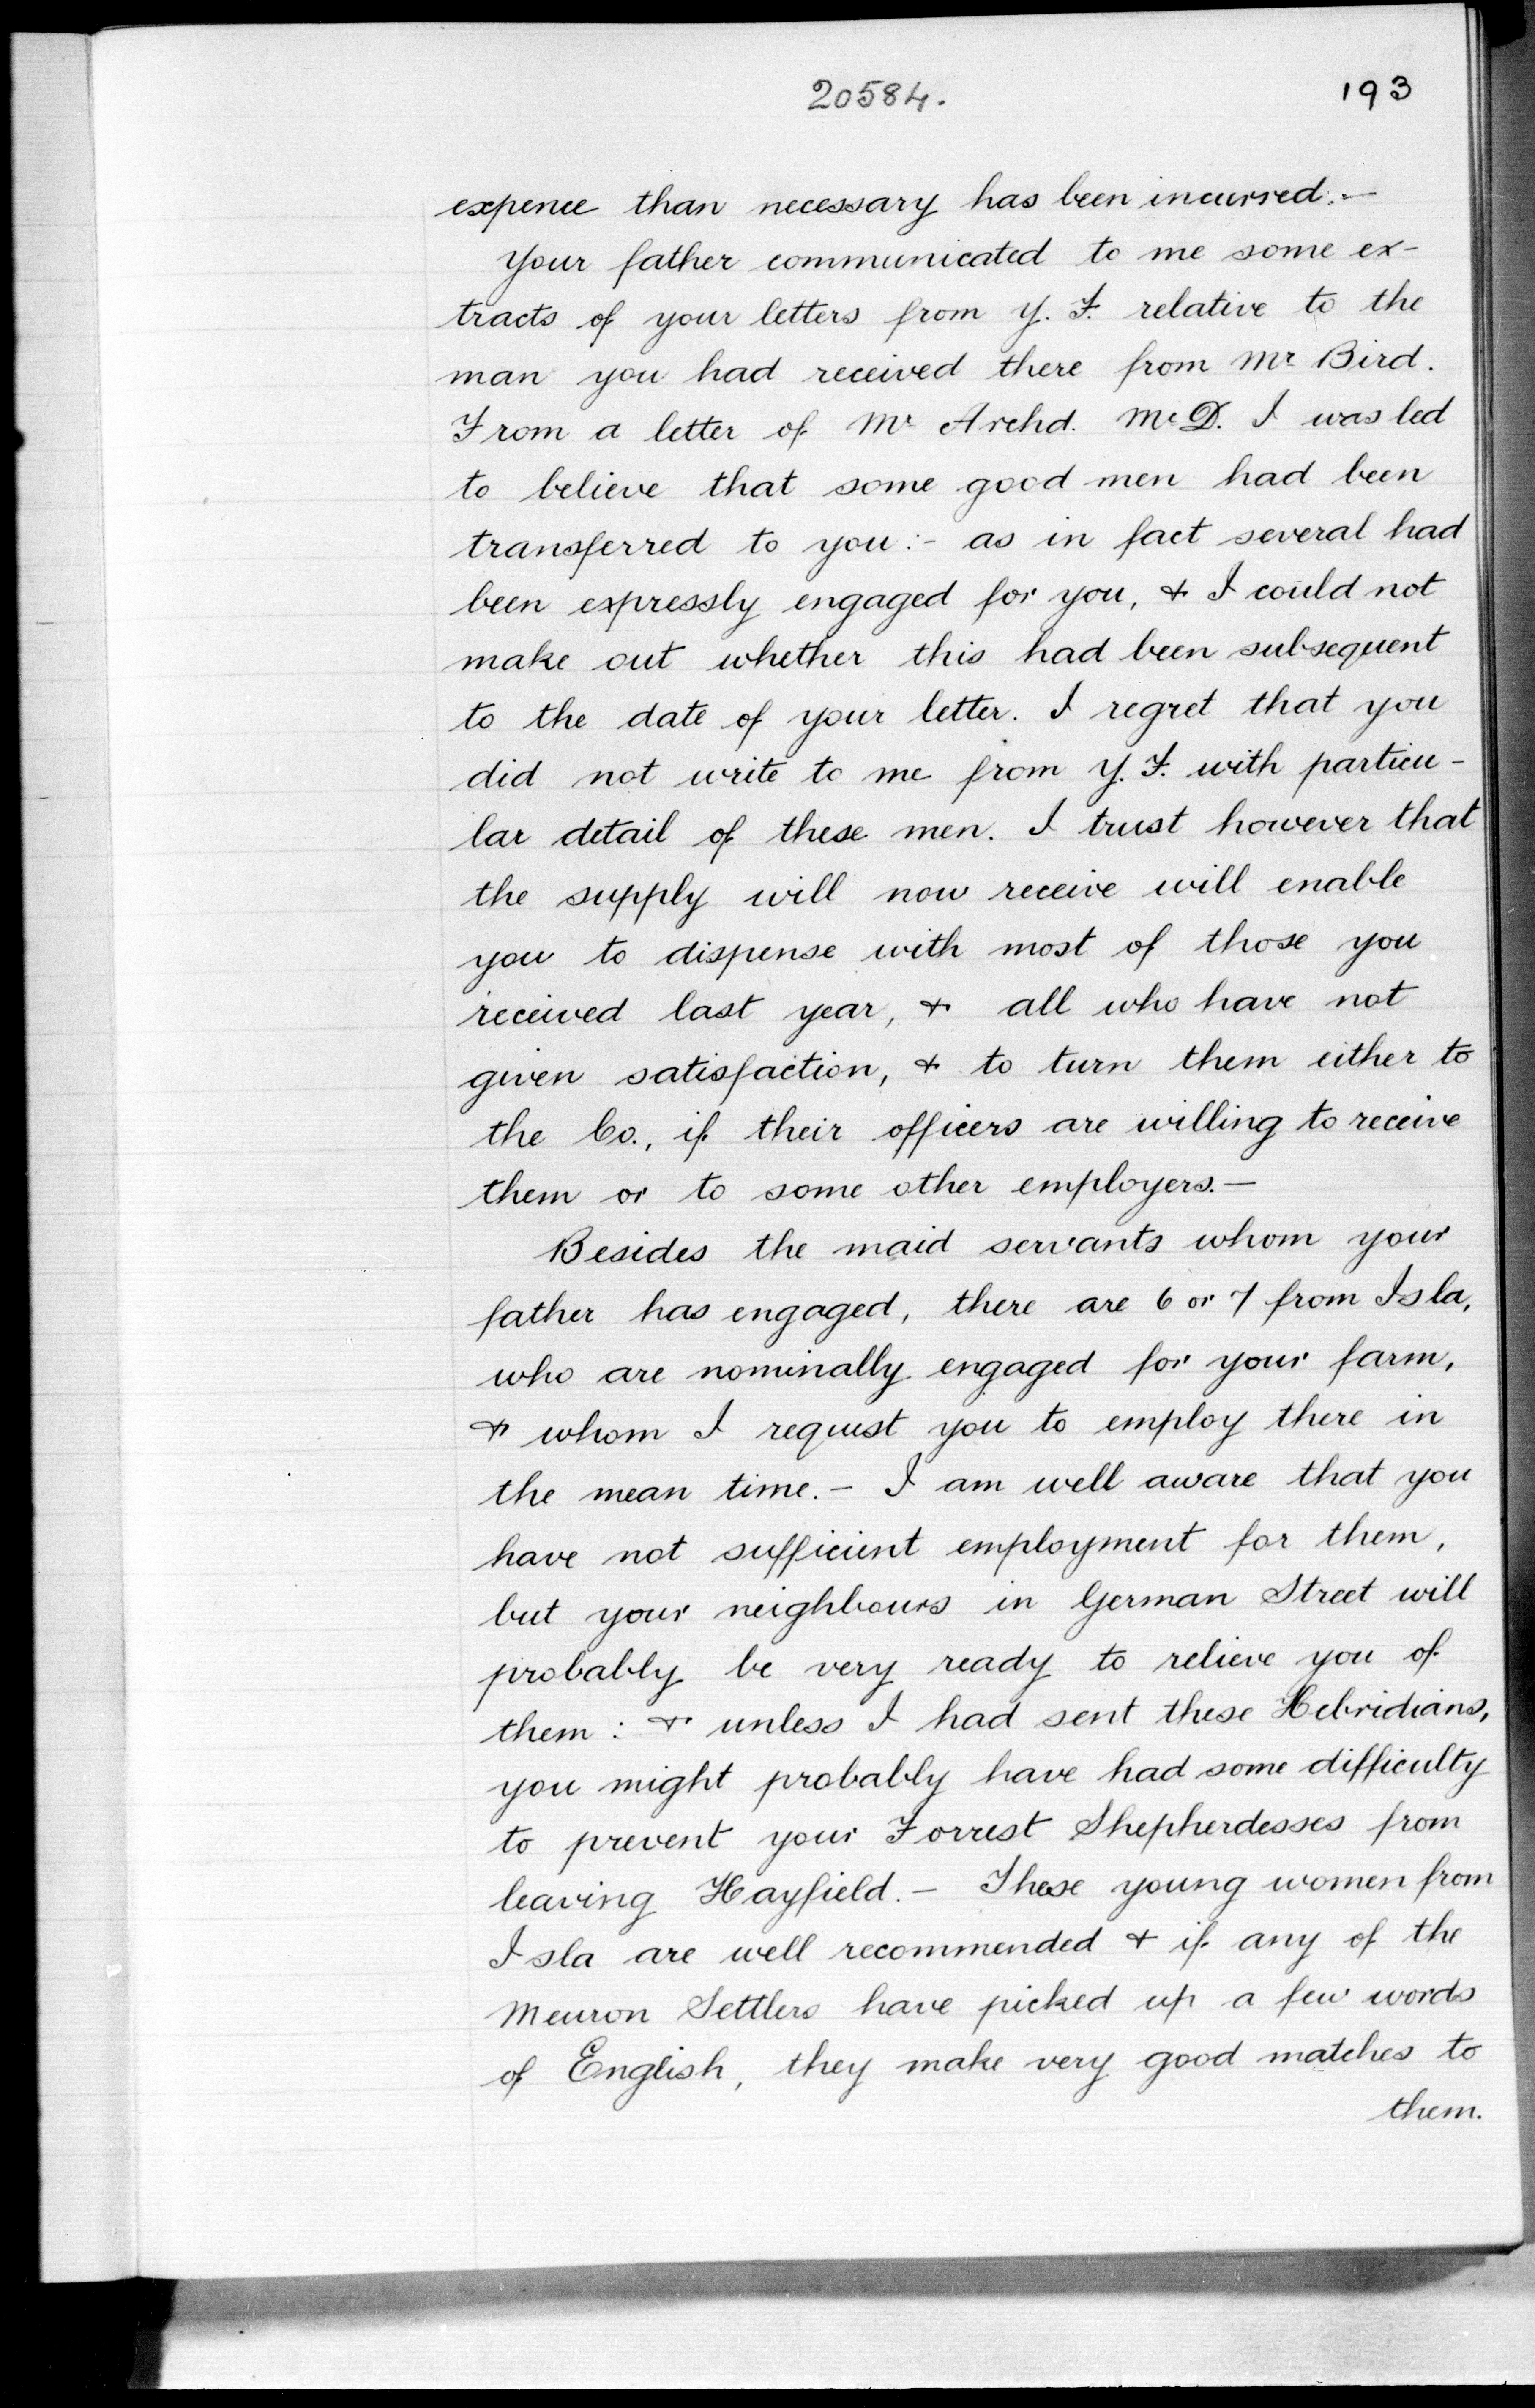 20584.
193
expence than necessary has been incurred.—
Your father communicated to me some ex-
tracts of your letters from Y. F. relative to the
man you had received there from Mr Bird.
From a letter of Mr Archd. McD. I was led
to believe that some good men had been
transferred to you:- as in fact several had
been expressly engaged for you, & I could not
make out whether this had been subsequent
to the date of your letter. I regret that you
did not write to me from Y. F. with particu-
lar detail of these men. I trust however that
the supply will now receive will enable
you to dispense with most of those you
received last year, & all who have not
given satisfaction, & to turn them either to
the Co., if their officers are willing to receive
them or to some other employers.—
Besides the maid servants whom your
father has engaged, there are 6 or 7 from Isla,
who are nominally engaged for your farm,
& whom I request you to employ there in
the mean time.— I am well aware that you
have not sufficient employment for them,
but your neighbours in German Street will
probably be very ready to relieve you of
them: & unless I had sent these Hebridians,
you might probably have had some difficulty
to prevent your Forrest Shepherdesses from
leaving Hayfield.— These young women from
Isla are well recommended & if any of the
Meuron Settlers have picked up a few words
of English, they make very good matches to
them.